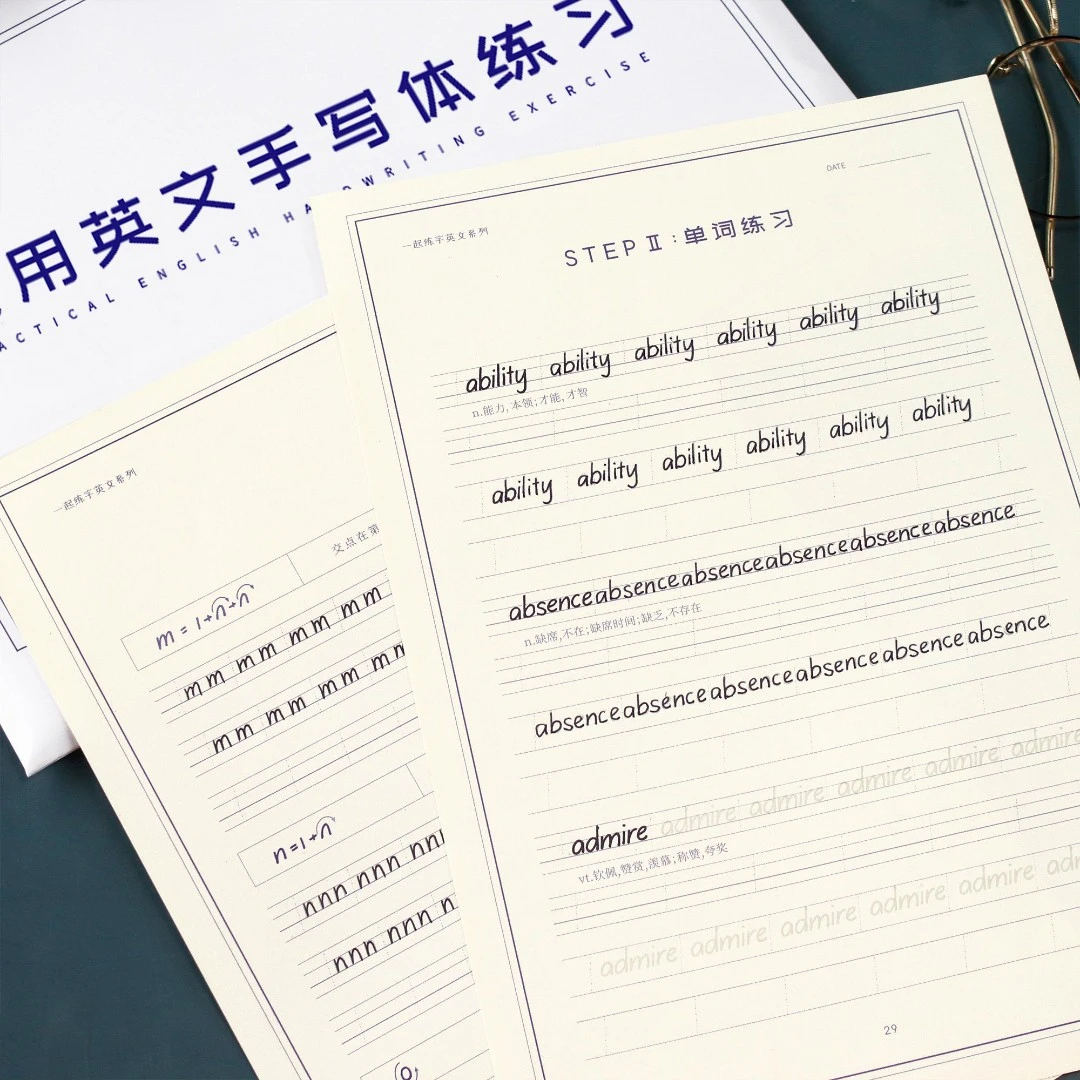 用英文手写体练习
ACTICAL ENGLISH HA DWRITING EXERCISE
DATE
一起练字英文系列
STEP Ⅱ:单词练习
ability ability ability ability ability ability
n.能力,本领;才能,才智
ability ability ability ability ability ability
absence absence absence absence absence absence
n.缺席,不在;缺席时间;缺乏,不存在
absence absence absence absence absence absence
admire admire admire admire admire admire
vt.钦佩,赞赏,羡慕;称赞,夸奖
admire admire admire admire admire adm
29
一起练字英文系列
交点在第
m = ı+n+n
m m m m m m m m
m m m m m m m m
n=ı+n
nnn nnn nnn
nnn nnn n